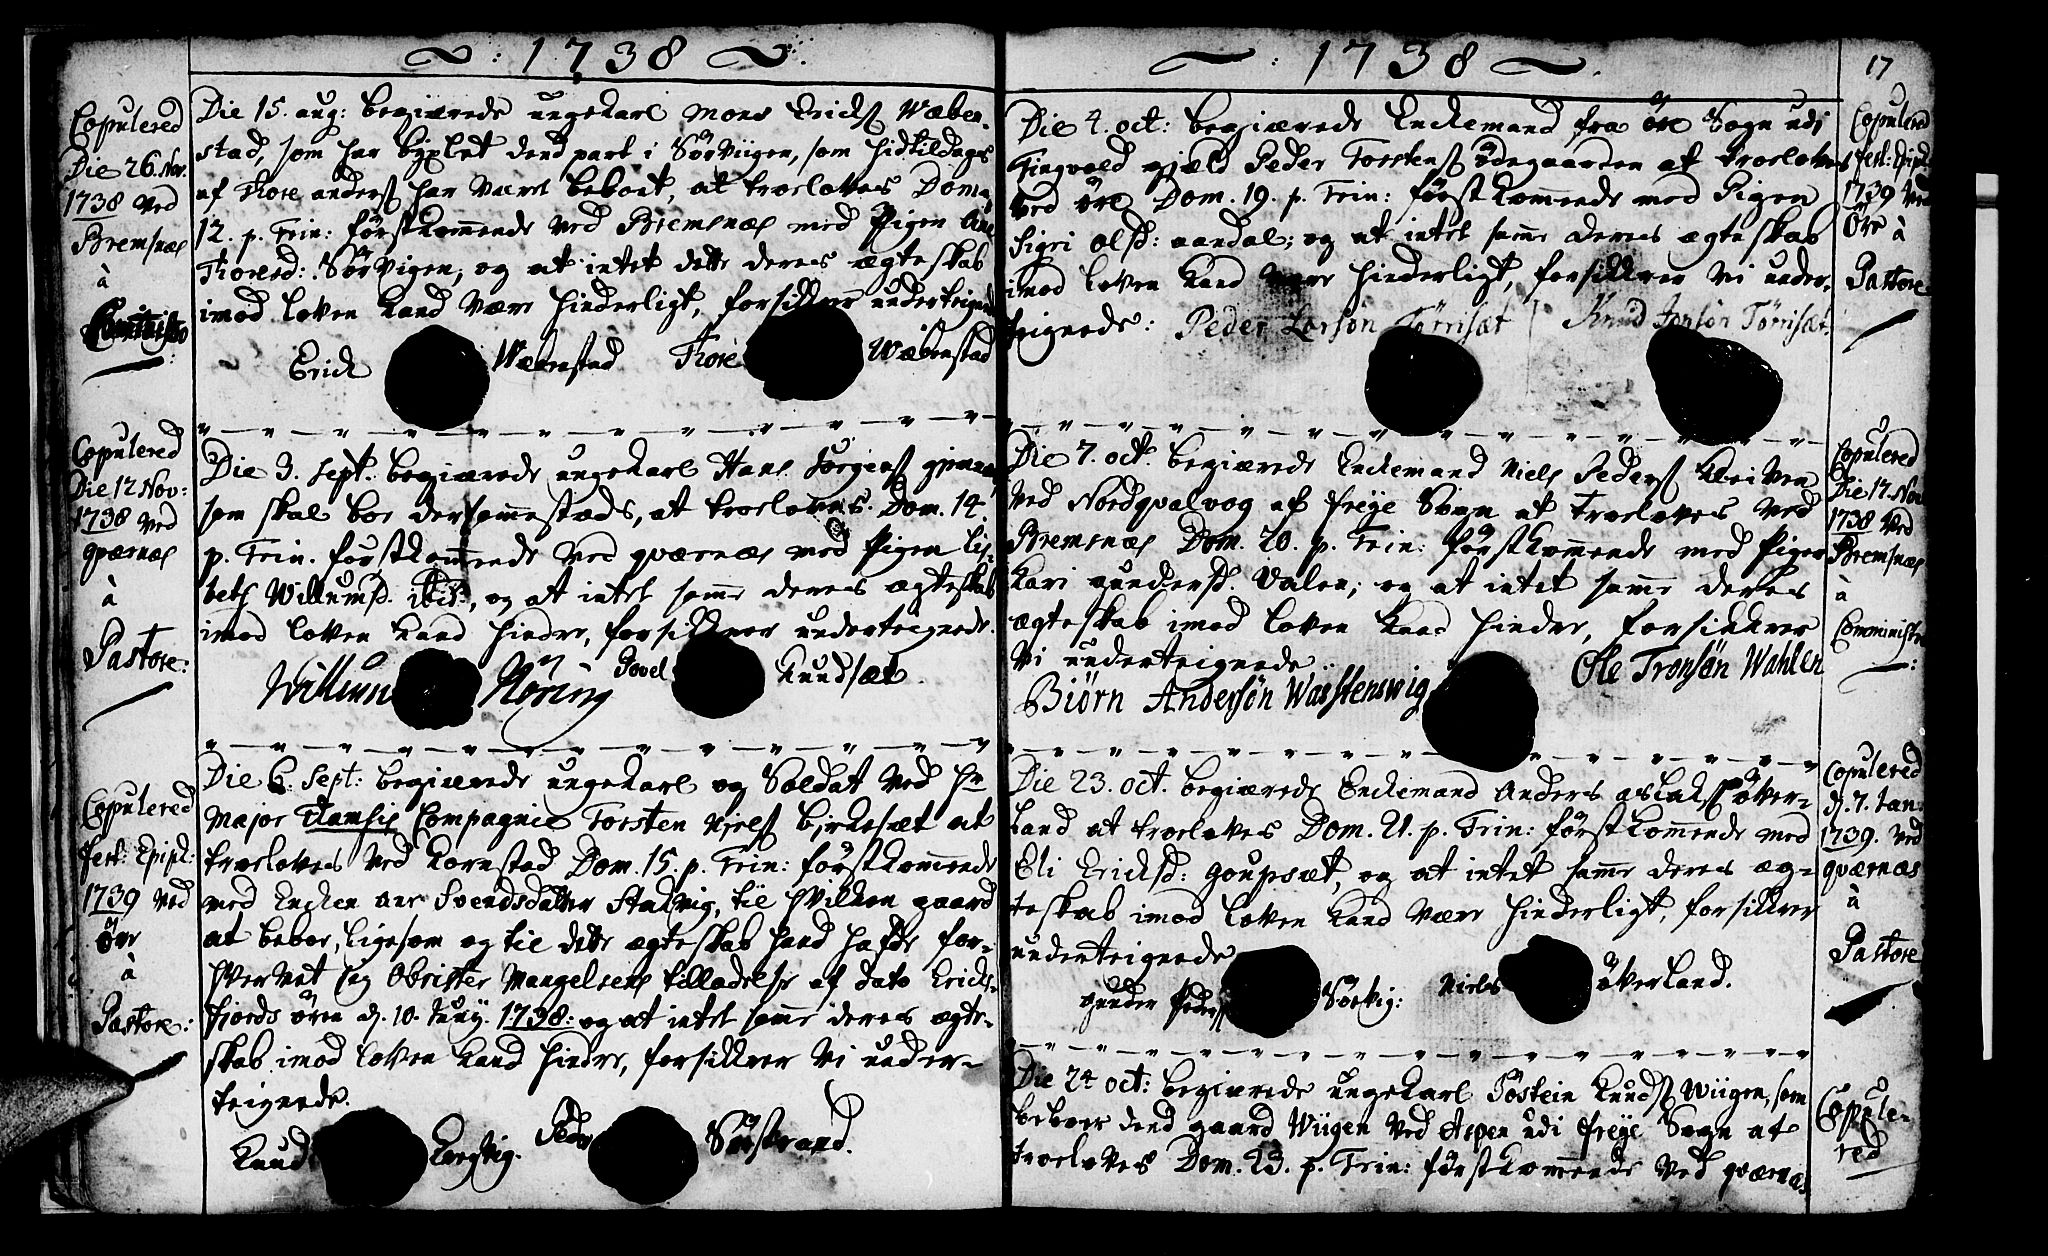 1738
Copulered
Die 26. Nov.
1738 ved
Bremsnæs
à
Die 15. aug: begiærede ungekarl Mons Erichs. Wæben-
stad, som har byxlet dend part i Sörviigen, som hidtildags
af Thore anders. har været beboet, at troeloves Dom.
12. p. Trin: förstkommende ved Bremsnæs med Pigen Ane
Thoresd: Sörvigen, og at intet dette deres ægteskab
imod loven kand være hinderligt, forsikkrer undertegnede
Erich Wæbenstad Thore Wæbenstad
Copulered
Die 12 Nov:
1738 ved
qværnæs
à
Pastore:
Die 3. Sept. begiærede ungekarl Hans Jörgens.
som skal boe dersammestæds, at troeloves Dom. 14
p. Trin. förstkommende ved qværnæs med Pigen Lis-
bets Willumsd. ibid:, og at intet samme deres ægteskab
imod loven kand hindre, forsikkrer undertegnede.
Willum Nöring Povel Knudsæt.
Copulered
fest: Epiph:
1739 ved
Öre
à
Pastore:
Die 6. Sept: begiærede ungekarl og Soldat ved Hr
Major Compagnie Torsten Niels. birkesæt at
troeloves ved Kornstad Dom. 15. p. Trin: förstkommende
med Encken Ane Svendsdatter Stalvig, til hvilken gaard
at beboe, ligesom og til dette ægteskab hand hafde for-
hvervet sig Obrister Mangelsens tilladelse af dato Erichs-
fiords ören d. 10. Juny. 1738: og at intet samme deres ægte-
skab imod loven kand hindre, forsikkrer vi under-
tegnede.
Knud Peder Sörstrand.
1738
17
Die 4. oct: begiærede Enckemand fra öre Sogn udi
Tingvold gjæld Peder Torstens. ödegaarden at troeloves
ved öre Dom. 19. p. Trin: förstkommende med Pigen
Sigri olsd: aandal; og at intet samme deres ægteskab
imod loven kand være hinderligt, forsikkrer vi under-
tegnede: Peder Larsön Törrisæt Knud Jonsön Törrisæt.
Copulered
fest: Epiph.
1739 ved
Öre à
Pastore
Die 7. oct. begiærede Enckemand Niels Peders. Kleiven
ved Nordqvalvog af freye Sogn at troeloves ved
Bremsnæs Dom. 20. p. Trin: förstkommende med Pigen
Kari gundersd. Valen; og at intet samme deres
ægteskab imod loven kand hindre, forsikkrer
vi undertegnede.
Biörn Andersön Wasstenswig Ole Tronsön Wahlen
Copulered
Die 17. Nov
1738 ved
Bremsnæs
à
Comministro
Die 23. oct. begiærede Enckemand Anders aslaks. öker-
land at troeloves Dom. 21. p. Trin: förstkommende med
Eli Ericksd: goupsæt, og at intet samme deres æg-
teskab imod loven kand være hinderligt, forsikkrer
undertegnede
gunder Peders. Sörvig: Niels ökerland.
Copulered
d. 7. Jan:
1739. ved
qværnæs
à
Pastore
Die 24 oct: begiærede ungekarl Jöstein Knuds. Wiigen, som
beboer dend gaard Wiigen ved Aspen udi freye Sogn at
troeloves Dom. 23. p. Trin: förstkommende ved qværnæs
Copule-
red